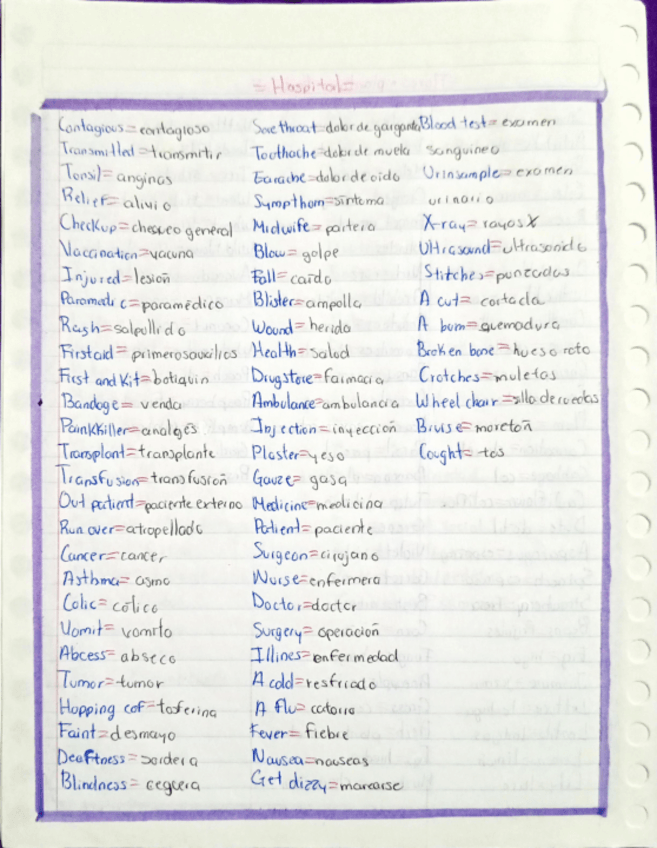 = Hospital =
Contagious = contagioso
Transmitled = transmitir
Tonsil = anginas
Relief = alivio
Checkup = chequeo general
Vaccination = vacuna
Injured = lesión
Paramedic = paramédico
Rash = salpullido
Firstaid = primerosauxilios
First and Kit = botiquin
Bandage = venda
Painkkiller = analgés
Transplant = transplante
Transfusion = transfusión
Out patient = paciente externo
Run over = atropellado
Cancer = cancer
Asthma = asma
Colic = cólico
Vomit = vomito
Abcess = abseco
Tumor = tumor
Hopping cof = tosferina
Faint = desmayo
Deaftness = sordera
Blindness = ceguera
Sore throat = dolor de garganta
Toothache = dolor de muela
Earache = dolor de oido
Sympthom = síntoma
Midwife = partera
Blow = golpe
Fall = caído
Blister = ampolla
Wound = herida
Health = salud
Drugstore = farmacia
Ambulance = ambulancia
Injection = inyección
Plaster = yeso
Gauze = gasa
Medicine = medicina
Patient = paciente
Surgeon = cirujano
Nurse = enfermera
Doctor = doctor
Surgery = operación
Illines = enfermedad
A cold = resfriado
A flu =
Fever = fiebre
Nausea = nauseas
Get dizzy = marearse
Blood test = examen
sanguineo
Urinsample = examen
urinario
X-ray = rayos X
Ultrasound = ultrasonido
Stitches = punzadas
A cut = cortada
A burn = quemadura
Broken bone = hueso roto
Crotches = muletas
Wheel chair = silla de ruedas
Bruise = moretón
Cought = tos